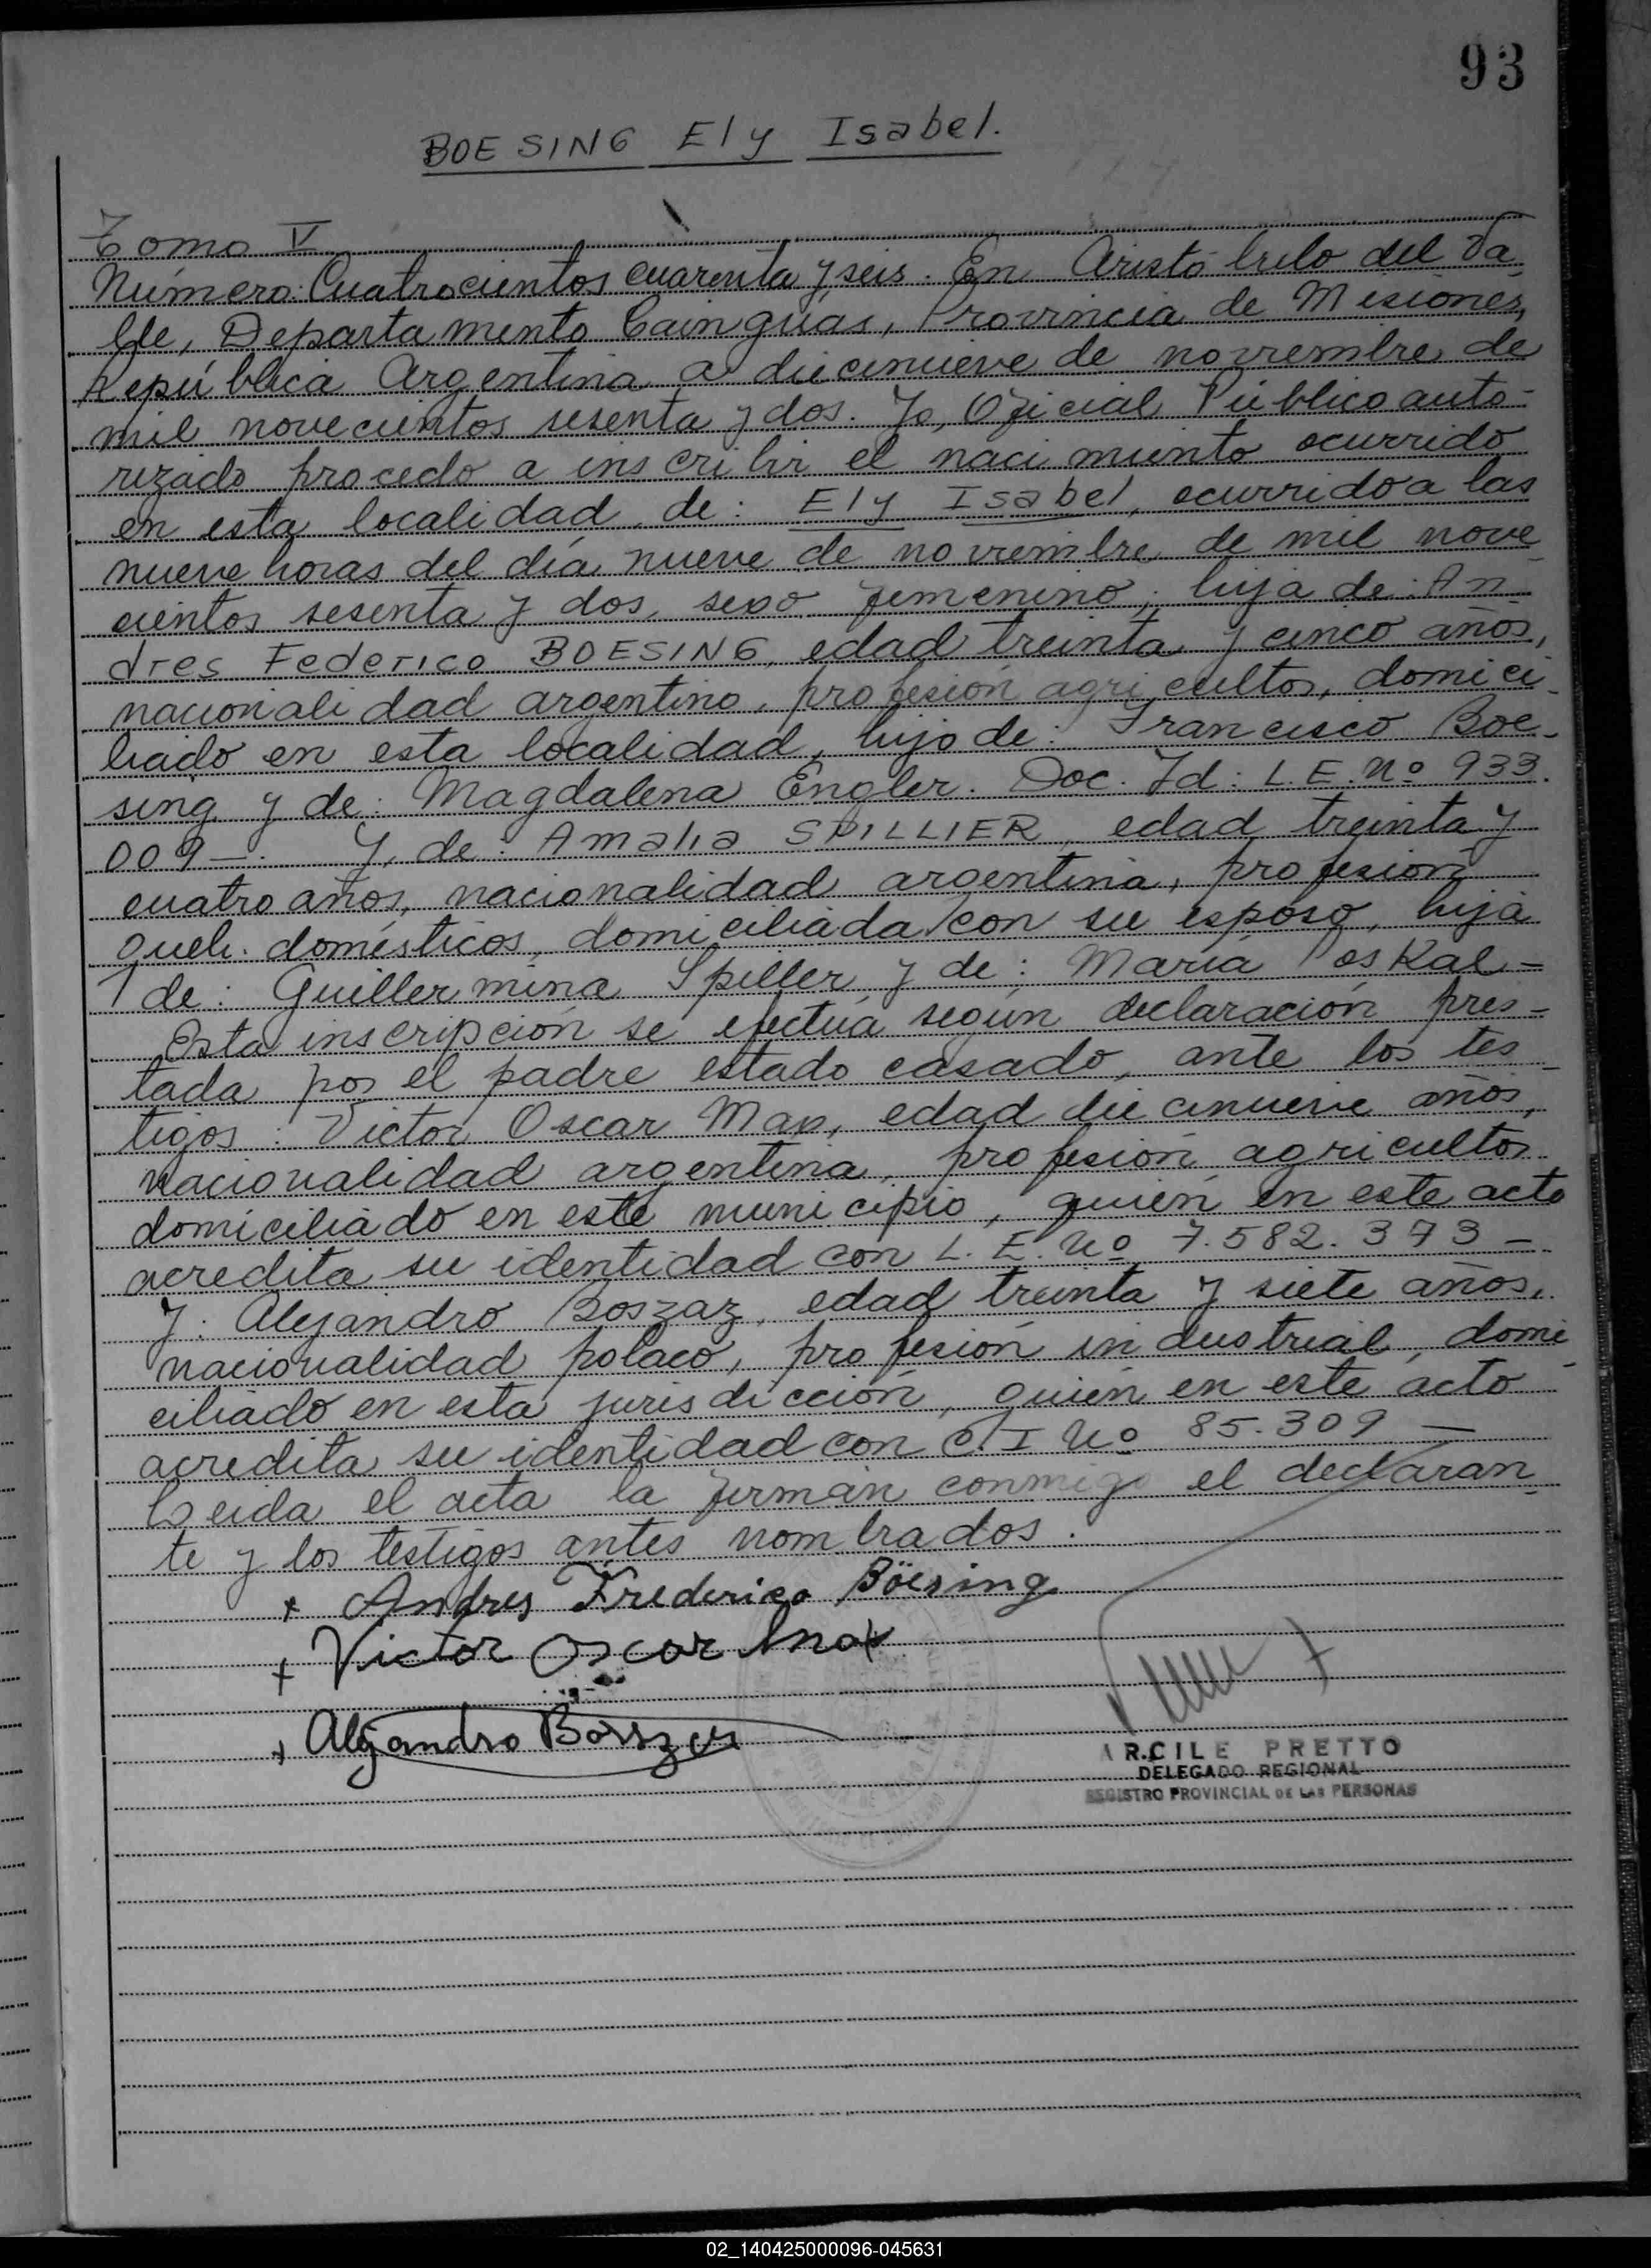 93
BOESING Ely Isabel.
Tomo V
Número: Cuatrocientos cuarenta y seis. En Aristóbulo del Va-
lle, Departamento Cainguás, Provincia de Misiones,
República Argentina a diecinueve de noviembre de
mil novecientos sesenta y dos. Yo, Oficial Público auto-
rizado procedo a inscribir el nacimiento ocurrido
en esta localidad de: Ely Isabel, ocurrido a las
nueve horas del día nueve de noviembre de mil nove
cientos sesenta y dos, sexo femenino; hija de: An-
dres Federico BOESING, edad treinta y cinco años,
nacionalidad argentino, profesión agricultor, domici-
liado en esta localidad, hijo de: Francisco Boe-
sing y de: Magdalena Engler. Doc. Id: L.E. Nº 933.
009-. Y, de: Amalia SPILLIER, edad treinta y
cuatro años, nacionalidad argentina, profesión
queh. domésticos, domiciliada con su esposo, hija
de: Guillermina Spiller y de: María Poskal-
Esta inscripción se efectúa según declaración pres-
tada por el padre estado casado, ante los tes-
tigos: Victor Oscar Max, edad diecinueve años,
nacionalidad argentina, profesión agricultor
domiciliado en este municipio, quién en este acto
acredita su identidad con L.E. Nº 7.582.373-
Y: Alejandro Boszaz, edad treinta y siete años,
nacionalidad polaco, profesión industrial, domi-
ciliado en esta jurisdicción, quién en este acto
acredita su identidad con C.I Nº 85.309-
Leida el acta la firman conmigo el declaran-
te y los testigos antes nombrados.
+ Andres Frederico Böesing
+ Victor Oscar Max
+ Alejandro
ARCILE PRETTO
DELEGADO REGIONAL
REGISTRO PROVINCIAL DE LAS PERSONAS
02_140425000096-045631